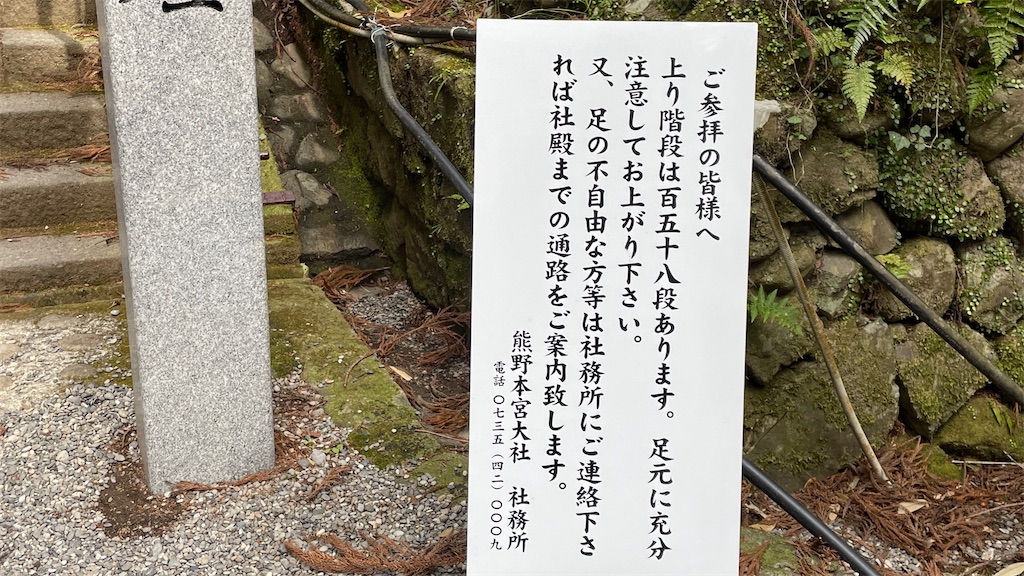 ご参拝の皆様へ
上り階段は百五十八段あります。 足元に充分
注意してお上がり下さい。
又、足の不自由な方等は社務所にご連絡下さ
れば社殿までの通路をご案内致します。
熊野本宮大社 社務所
電話 〇七三五(四二)〇〇〇九